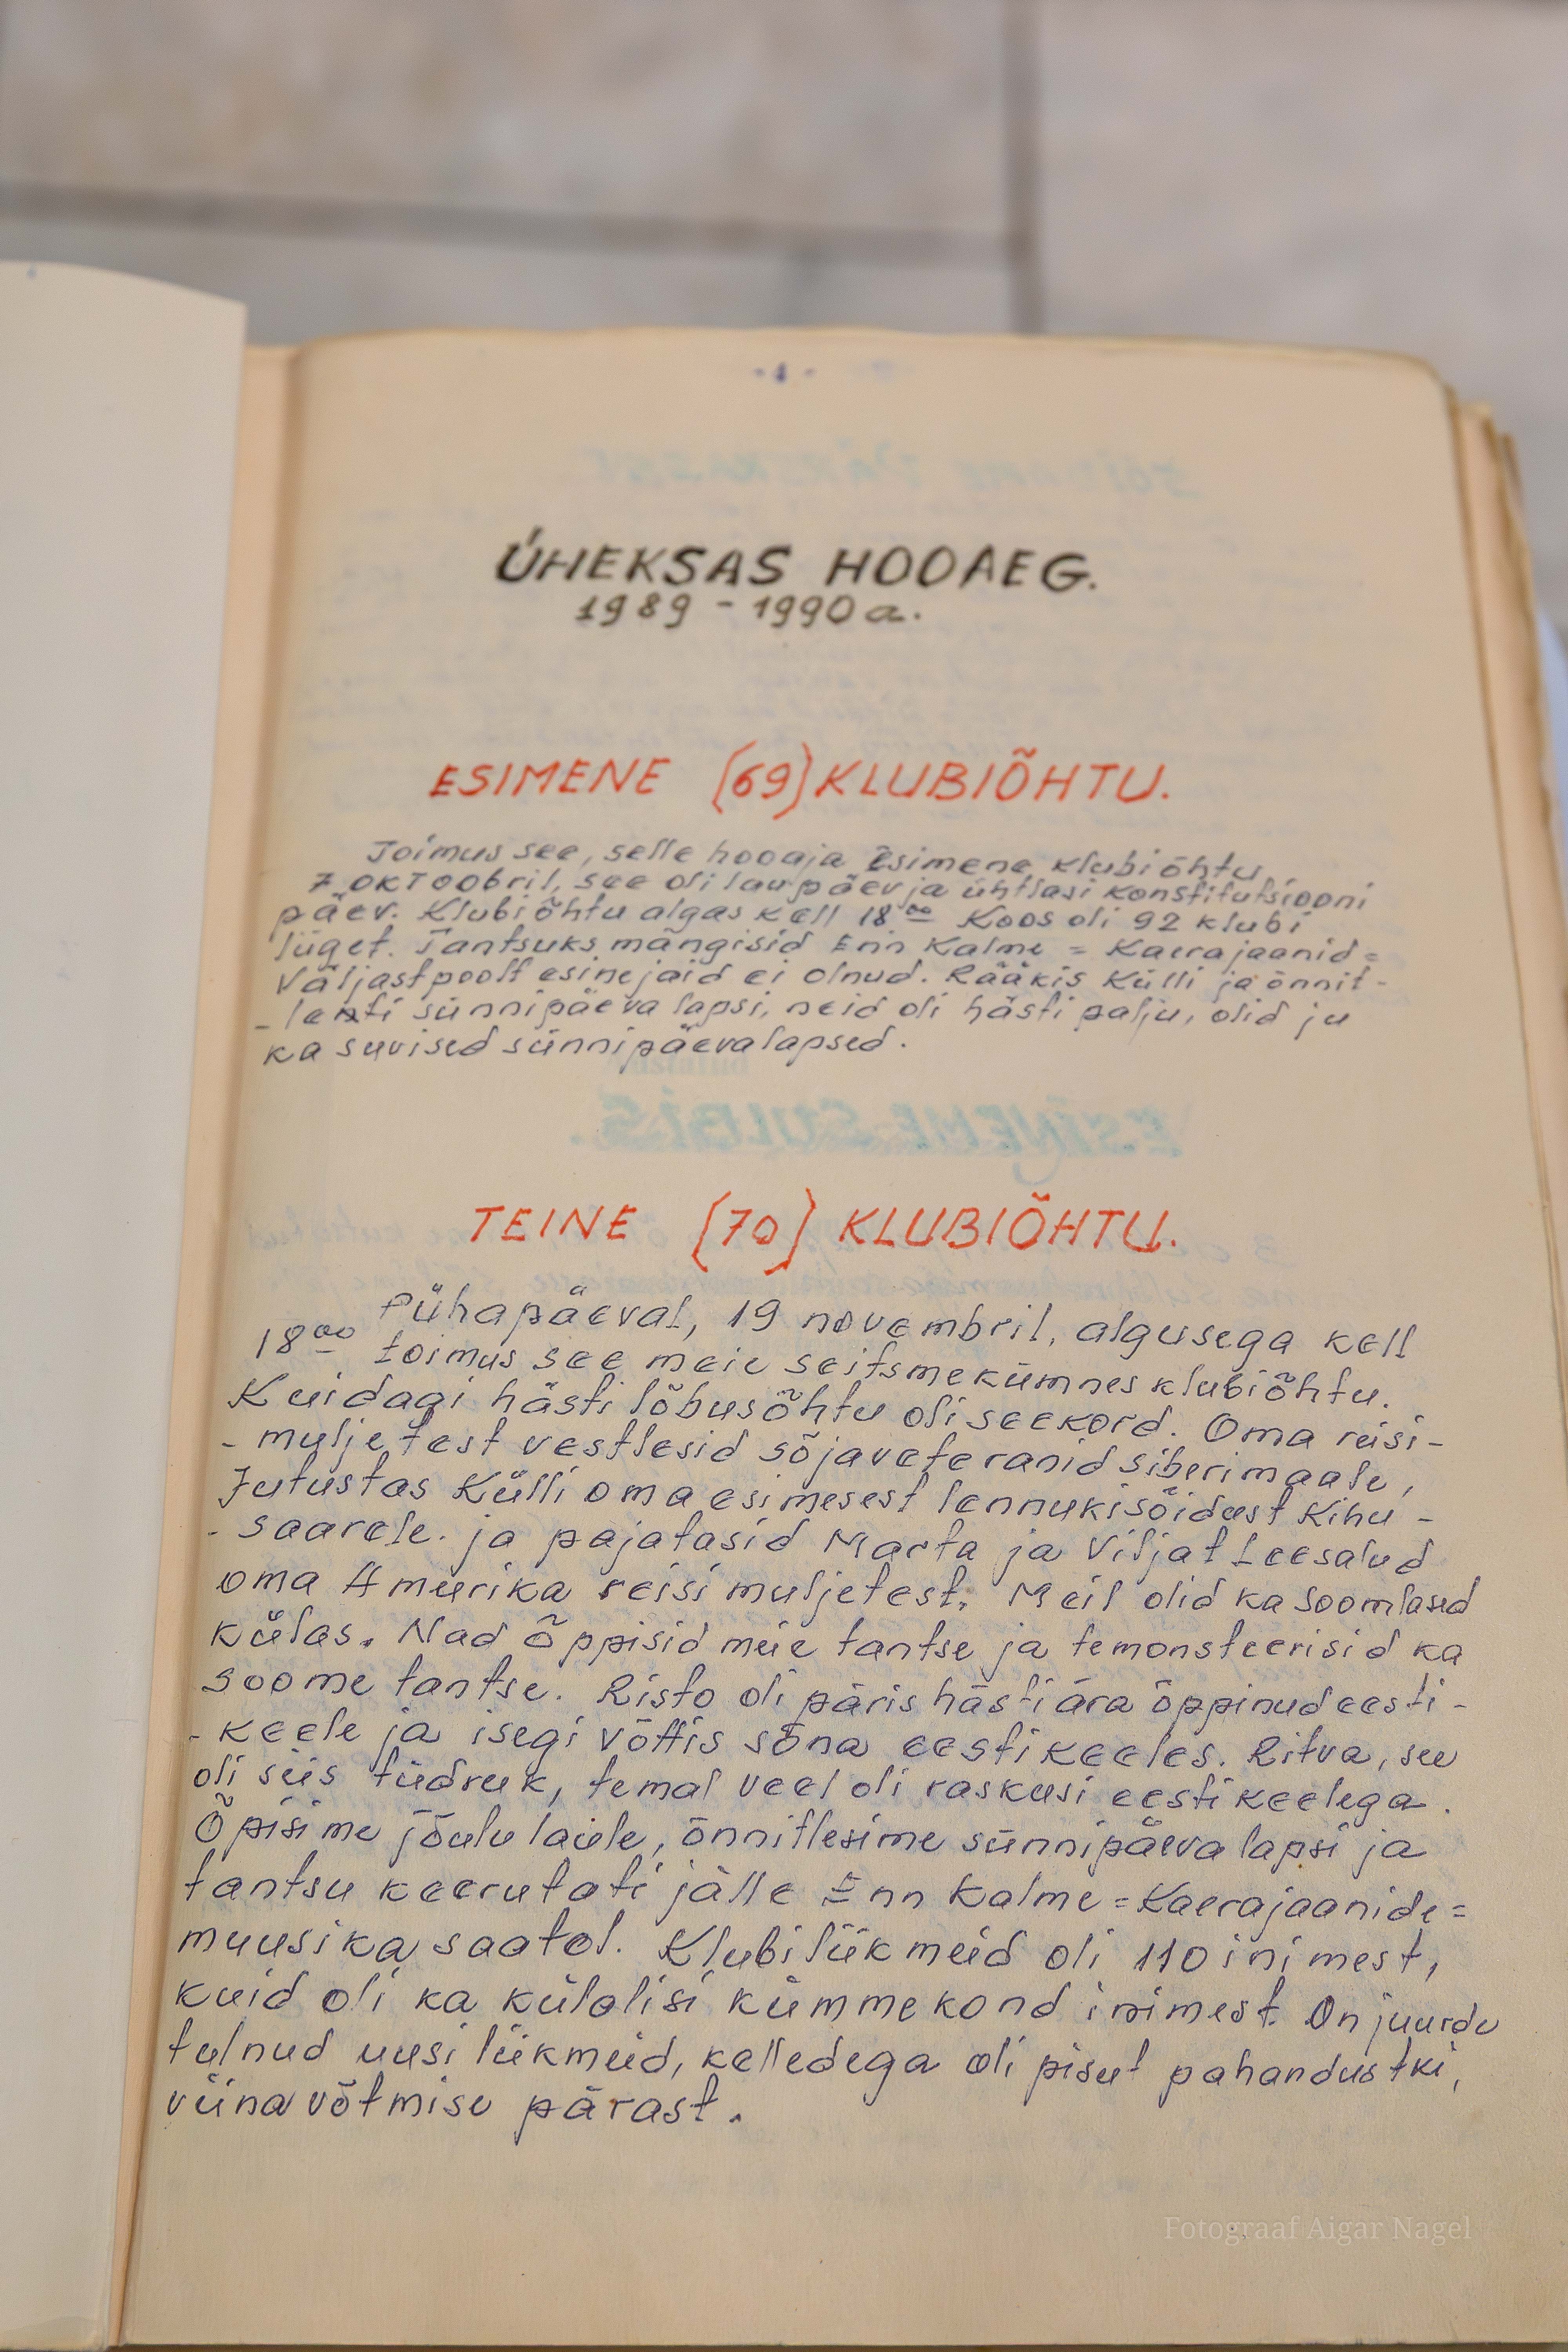 - 1 -
ÜHEKSAS HOOAEG.
1989 - 1990 a.
ESIMENE (69) KLUBIÕHTU.
Toimus see, selle hooaja esimene klubiõhtu,
7. OKTOObril, see oli laupäev ja ühtlasi konstitutsiooni
päev. Klubiõhtu algas kell 18⁰⁰ Koos oli 92 klubi
liiget. Tantsuks mängisid Enn Kalme = Kaerajaanid =
Väljastpoolt esinejaid ei olnud. Rääkis Külli ja õnnit-
- lenti sünnipäeva lapsi, neid oli hästi palju, olid ju
ka suvised sünnipäevalapsed.
ESINEME SULBIS.
TEINE (70) KLUBIÕHTU.
Pühapäeval, 19 novembril, algusega kell
18⁰⁰ toimus see meie seitsmekümnes klubiõhtu.
Kuidagi hästi lõbusõhtu oli seekord. Oma reisi-
- muljetest vestlesid sõjaveteranid siberimaale,
Jutustas Külli oma esimesest lennukisõidust Kihu -
- saarele. ja pajatasid Marta ja Viljat Leesalud
oma Ameerika reisi muljetest. Meil olid ka soomlased
külas. Nad õppisid meie tantse ja temonsteerisid ka
soome tantse. Risto oli päris hästi ära õppinud eesti -
- keele ja isegi võttis sõna eestikeeles. Ritva, see
oli siis tüdruk, temal veel oli raskusi eestikeelega.
Õpisime jõulu laule, õnnitlesime sünnipäeva lapsi ja
tantsu keerutati jälle Enn Kalme = Kaerajaanide =
muusika saatel. Klubiliikmeid oli 110 inimest,
kuid oli ka külalisi kümmekond inimest. On juurde
tulnud uusi liikmeid, kelledega oli pisut pahandustki,
viina võtmise pärast.
Fotograaf Aigar Nagel